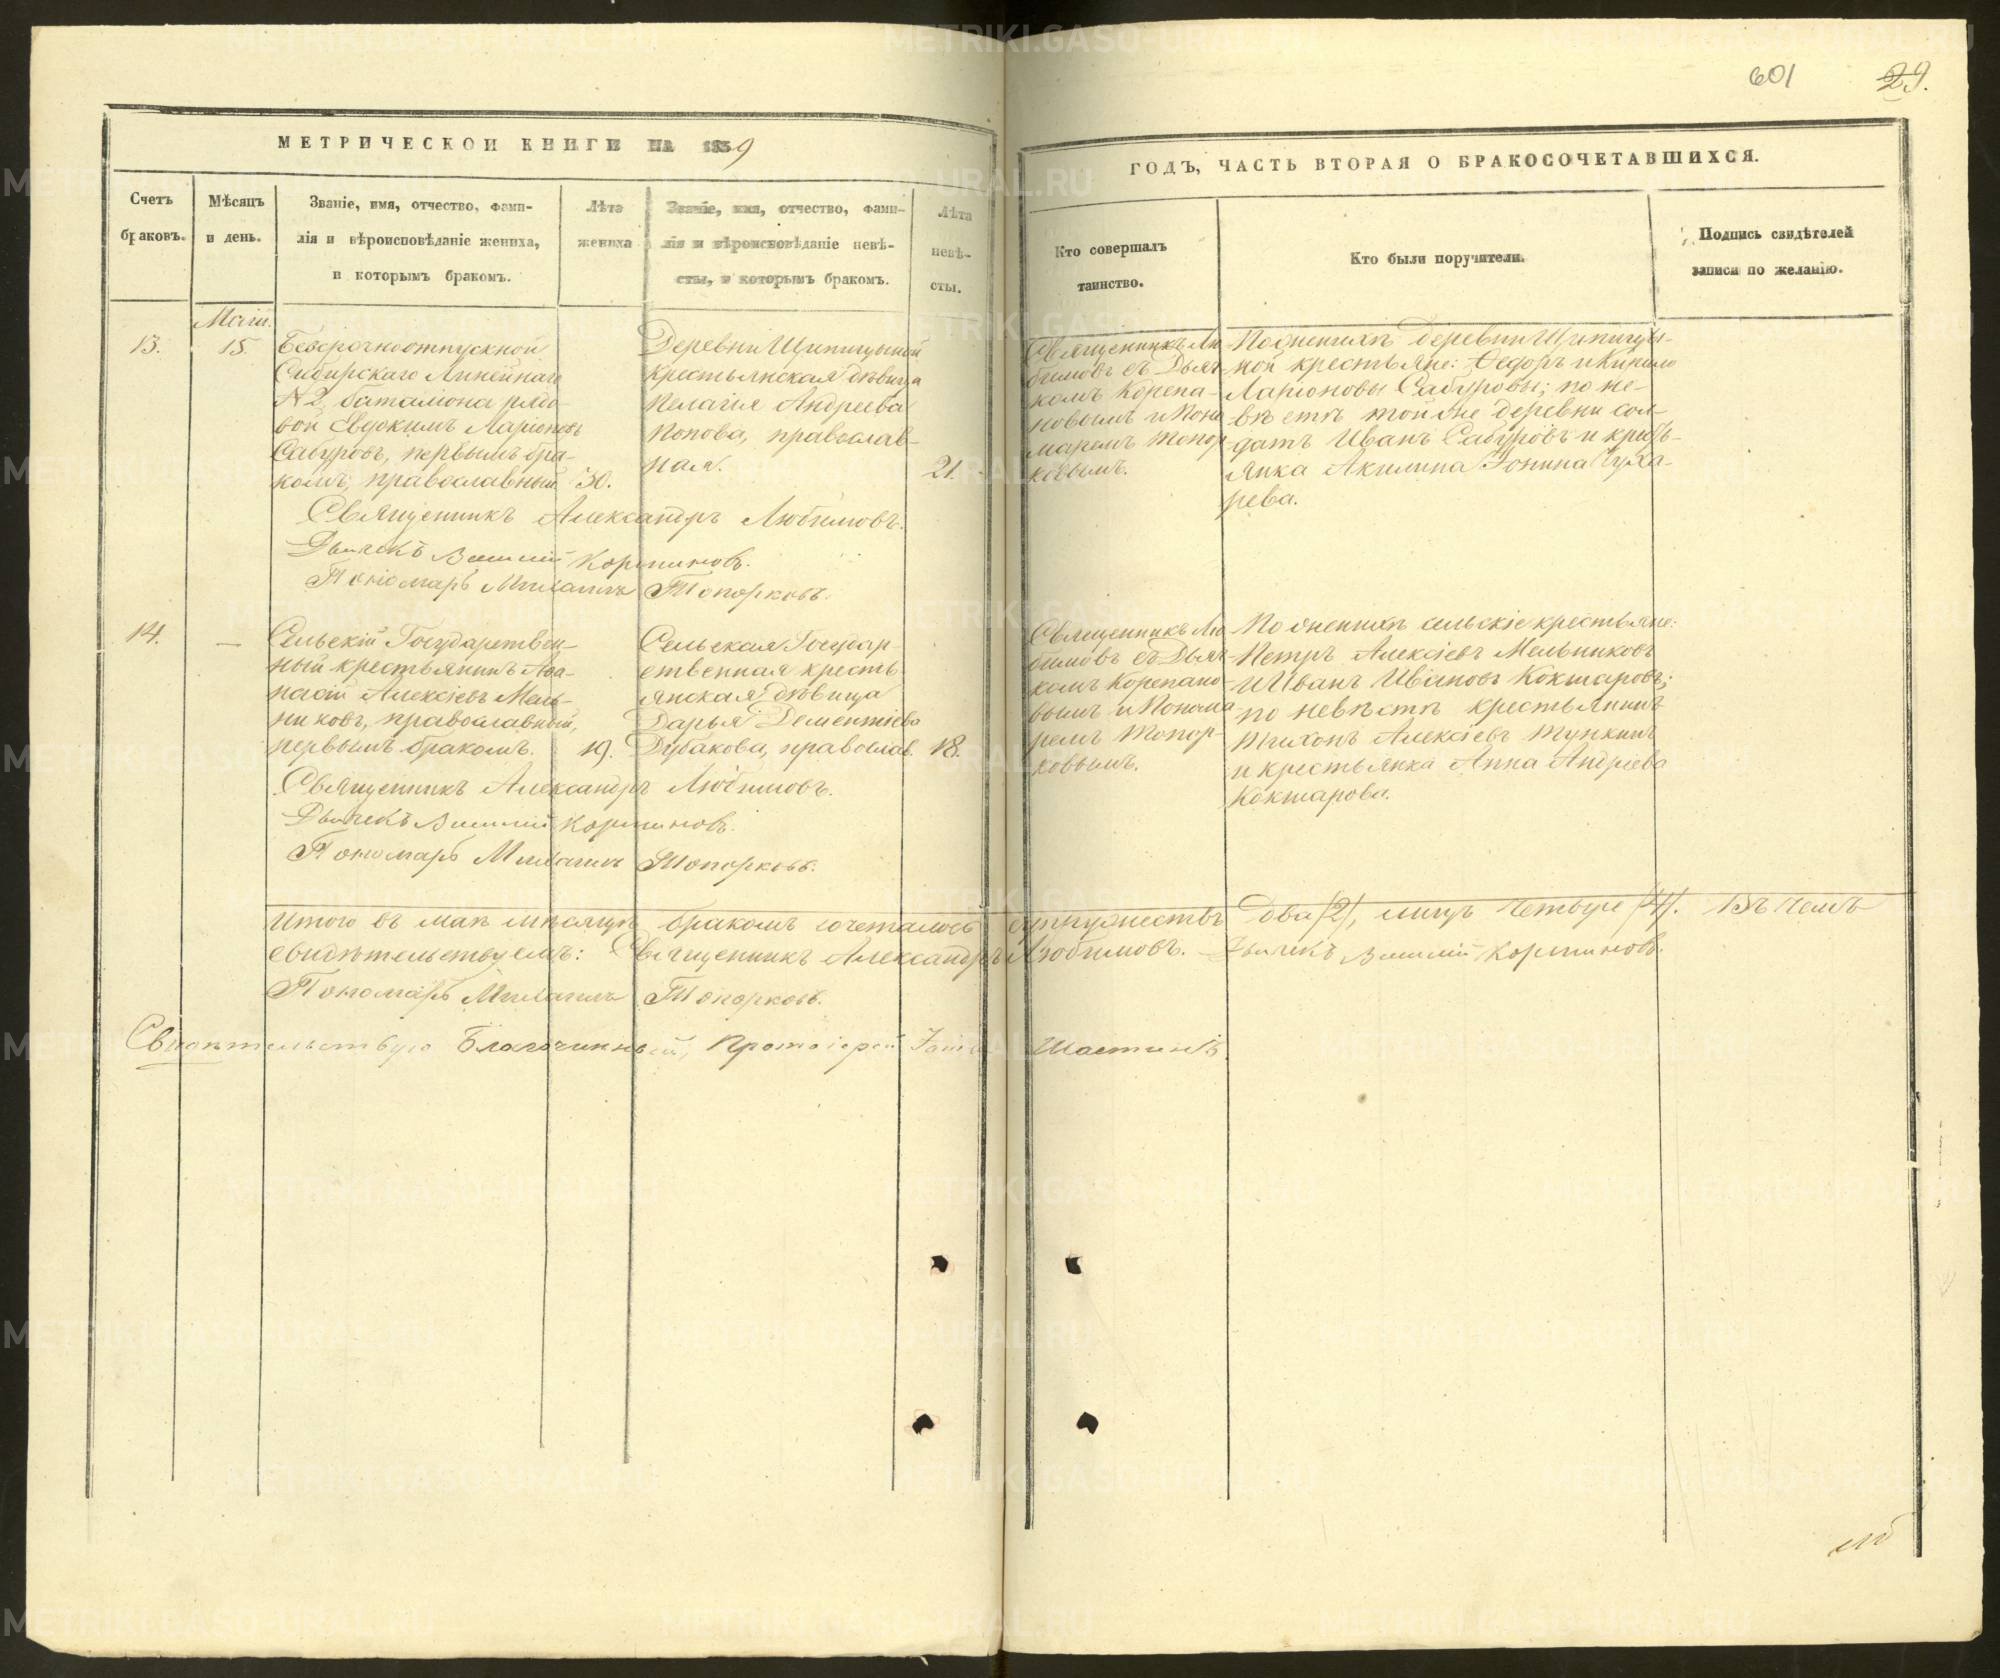 601
29.
МЕТРИЧЕСКОЙ КНИГИ НА 1859
ГОДЪ, ЧАСТЬ ВТОРАЯ О БРАКОСОЧЕТАВШИХСЯ.
Счетъ
браковъ.
Мѣсяцъ
и день.
Званіе, имя, отчество, фами-
лія и вѣроисповѣданіе жениха,
и которымъ бракомъ.
Лѣта
жениха
Званіе, имя, отчество, фами-
лія и вѣроисповѣданіе невѣ-
сты, и которымъ бракомъ.
Лѣта
невѣ-
сты.
Кто совершалъ
таинство.
Кто были поручители.
Подпись свидѣтелей
записи по желанію.
13.
Маiя.
15.
Безсрочноотпускной
Сибирскаго Линейнаго
№ 2 баталiона рядо-
вой Евдокимъ Ларiоновъ
Сабуровъ, первымъ бра-
комъ, православный
30.
Деревни Шипицыной
крестьянская дѣвица
Пелагiя Андреева
Попова, православ-
ная.
21.
Священникъ Лю-
бимовъ съ Дьяч-
комъ Корепа-
новымъ и Поно-
маремъ Топор-
ковымъ.
По женихѣ деревни Шипицы-
ной крестьяне: Ѳедоръ и Кирило
Ларiоновы Сабуровы; по не-
вѣстѣ той же деревни сол-
датъ Иванъ Сабуровъ и кресть-
янка Акилина Iонина Чуха-
рева.
Священникъ Александръ Любимовъ.
Дьячекъ Василiй Корепановъ.
Пономарь Топорковъ.
14.
—
Сельскiй Государствен-
ный крестьянинъ Аѳа-
насiй Алексiевъ Мель-
никовъ, православный,
первымъ бракомъ.
19.
Сельская Государ-
ственная кресть-
янская дѣвица
Дарья Дементiева
Дубакова, православ.
18.
Священникъ Лю-
бимовъ съ Дьяч-
комъ Корепано-
вымъ и Понома-
ремъ Топор-
ковымъ.
По женихѣ сельскiе крестьяне:
Петръ Алексiевъ Мельниковъ
и Иванъ Ивановъ Кокшаровъ;
по невѣстѣ крестьянинъ
Тихонъ Алексiевъ Тункинъ
и крестьянка Анна Андреева
Кокшарова.
Священникъ Александръ Любимовъ.
Дьячекъ Василiй Корепановъ.
Пономарь Топорковъ.
Итого въ маѣ мѣсяцѣ бракомъ сочеталось супружествъ два /2/, лицъ четыре /4/. Въ чемъ
свидѣтельствуемъ: Священникъ Александръ Любимовъ. Дьячекъ Василiй Корепановъ.
Пономарь Топорковъ.
Свидѣтельствую Благочинный, Протоiерей Шастинъ